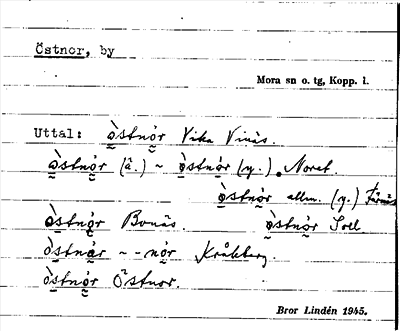 Östnor, by
Mora sn o. tg, Kopp. l.
Uttal: ò̤stnò̤r Vika Vinäs.
ò̤stnò̤r (ä.) ~ ò̤stnór (y.). Noret.
ò̤stnò̤r allm. (y.) Färnäs
ò̤stnò̤r Bonäs. ò̤stnò̤r Soll
òstnär ~ -nór Kråkberg.
òstnò̤r Östnor.
Bror Lindén 1945.